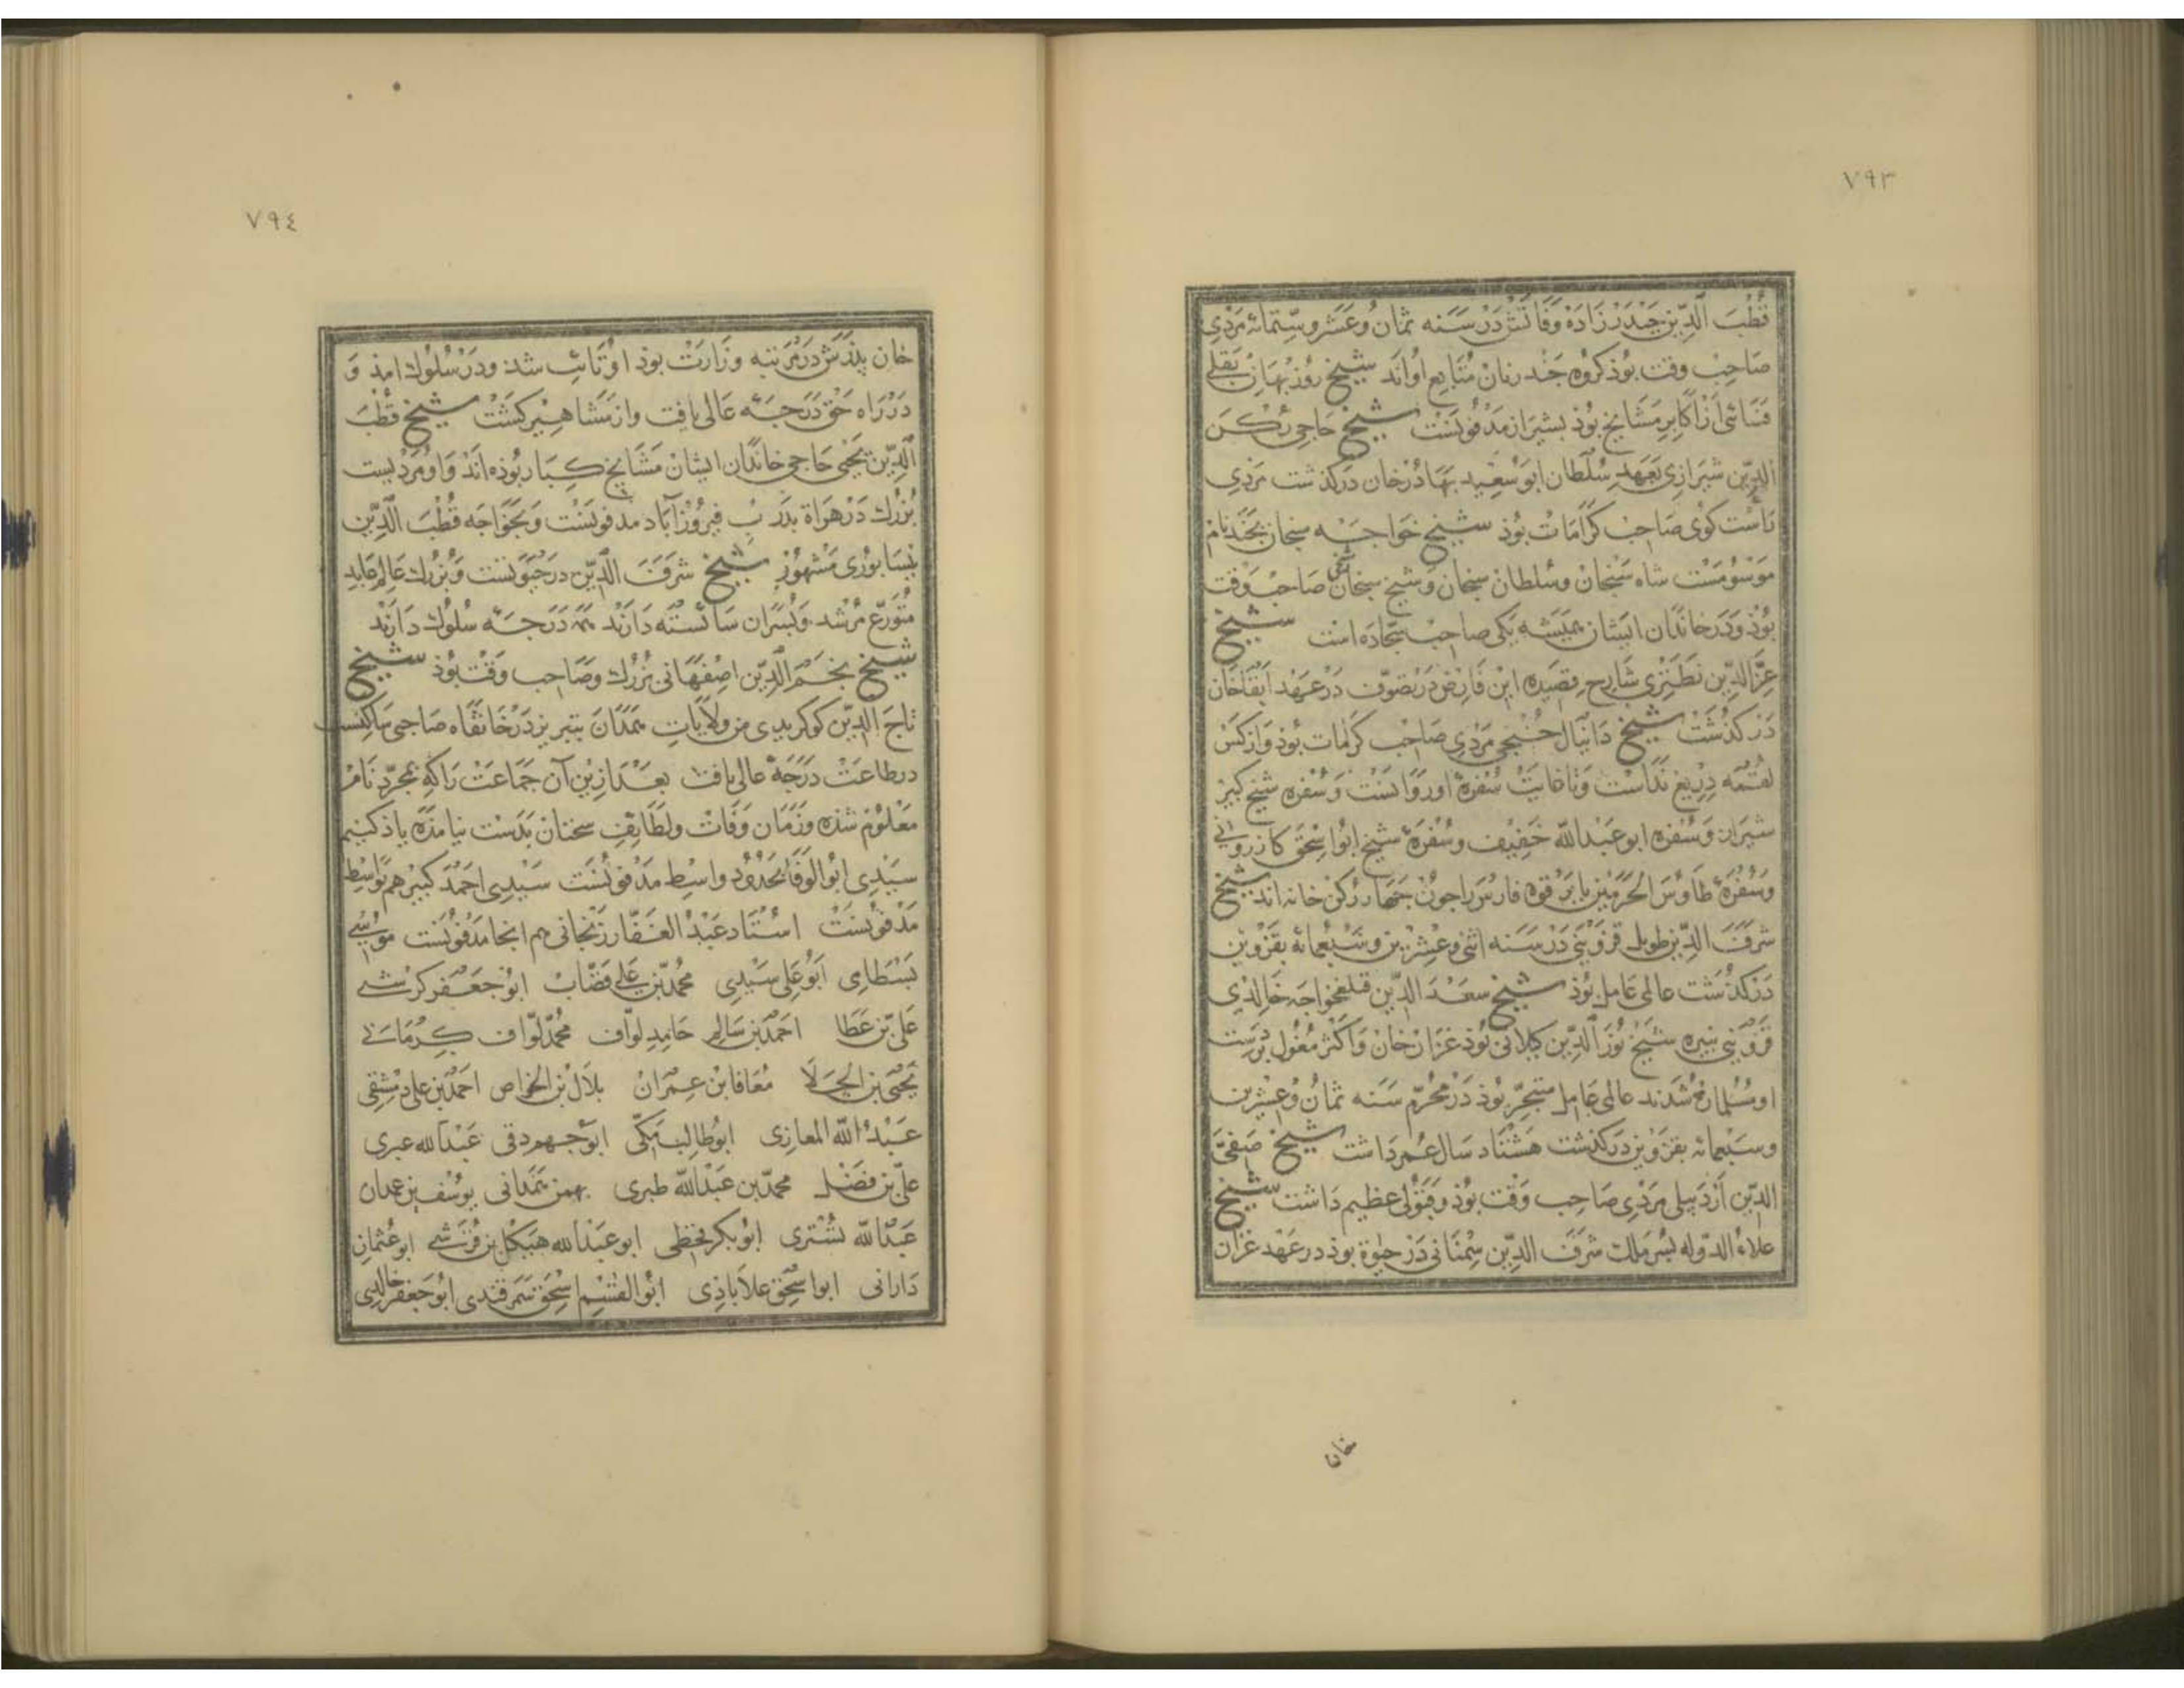 ٧٩٣
قُطْبَ الدِّين حَیْدَر زَادَه وَفَاتَش دَرْ سَنَه ثمان وعَشَر وستمائه مَرْدِی
صَاحِب وقت بُوذ کروه جَند زنان مُتابع اواند شیخ رُوزبهان بَقلی
فَسَائی از اکابر مَشَایخ بُوذ بشیراز مَدْفُونَسْت شیخ حَاجی رُکن
الدِّین شیرازی بعهد سُلطان ابو سَعِید بَهَادُرخان درکذشت مَرْدِی
رَاسْت کوی صَاحِب کَرَامَات بُوذ شیخ خوَاجَه سنجان بجَند نام
مَوْسُومَسْت شاه سَنجان وسُلطان سنجان وَشیخ سنجان صَاحِب وَقت
بُوذ وَدَر خاندان ایشان همیشه یکی صاحب سجّاده است شیخ
عِزّ الدِّین نَطَنْزِی شَارح قصیده ابن فارض در تصوّف دَرْ عَهْد ابقاخان
دَرْ کذُشَتْ شیخ دَانیَال خُنجی مَرْدِی صَاحِب کَرَامَات بُوذ وَاز کس
لقمه دِرِیغ نداشت وَتا غایت سُفره او روَانَسْت وَسُفره شیخ کبیر
شیراز وَسُفره ابو عَبْد الله خَفِیف وسُفرهٔ شیخ ابُو اسْحَق کازرونی
وسُفرهٔ طاوُس الحَرَمَیْن بابرقوه فارس را جون جَهار رُکن خانه اند شیخ
شرَفَ الدِّین طویل قزوینی دَرْ سَنَه اثنی وعِشْرِین وسَبْعِمائه بقَزْوِین
دَرْکذُشت عالمی عَامل بُوذ شیخ سَعْدَ الدِّین قتلغخواجه خَالِدِی
قزوینی نبیره شیخ نُورَ الدِّین کیلانی بُوذ غزان خان وَاکثر مُغول بدَست
او مُسُلمان شُدند عالمی عَامِل متبحّر بُوذ دَرْ مُحَرّم سَنَه ثمان وعِشْرِین
وسَبْعمائه بقزوین درکذشت هَشْتاد سَال عُمر دَاشت شیخ صَفیَّ
الدِّین اَرْدَبیلی مَرْدِی صَاحِب وَقت بُوذ وقبُولی عظیم دَاشت شیخ
علاءُ الدّوله بسر ملک شرَفَ الدِّین سمْنَانی دَرْ حیٰوة بوذ در عَهْد غزان
خان
٧٩٤
خان بذرَش دَرْ مَرْتبه وزارَتْ بوذ او تائب شد ودَرْ سُلُوك امذ وَ
دَرْ رَاه حَقّ دَرَجَهٔ عَالی یافت واز مَشاهیر کَشَتْ شیخ قُطْبَ
الدِّین یَحْیَی جَاجی خاندان ایشان مَشَایخ کبار بُوذه اَنْد وَاو مَرْدیست
بُزُرك دَرْ هَرَاة بدَرب فیروزآباد مدفونَسْت وَبخواجَه قُطْبَ الدِّین
نیسَابُوری مَشهُورْ شیخ شرَفَ الدِّین در حیٰوتَست وَبُزُرك عَالِم عَابِد
مُتَورّع مُرْشد وَبُسَران شایسته دَارَنْد همه دَرَجَه سُلوك دَارَنْد
شیخ نجْمَ الدِّین اصفهانی بُزُرك وصَاحب وقْت بُوذ شیخ
تاج الدِّین کوکریدی من ولَایَات هَمَدَان بتبریز دَرْ خَانقاه صَاحبی سَاکنست
در طاعَتْ دَرَجَهٔ عالی یافت بعْدَ ازین آن جَماعَتْ رَا که بمجرّد نَام
مَعْلُوم شذه وزَمَان وَفَات ولَطَایِفِ سخنان بدَسْت نیامَذه یاذ کنیم
سَیّدِی ابُو الوَفَا بحُدُود واسط مَدْفونَسْت سَیّدِی احْمَد کَبیر هم بوَاسِط
مَدْفونَسْت اسْتَاد عَبْدُ الغَفّار زَنجَانی هم انجا مَدْفونَست مُوسی
بَسْطَامِی اَبُو عَلی سَیّدِی مُحمَّد بن عَلی قَصّاب ابُو جَعْفر کرشی
عَلی بن عَطَا احمَد بن سَالِم حَامِد لوّاف مُحمّد لوّاف کرْمَانی
یَحْیَی بن الجَلا مُعَافا بن عِمرَان بلَال بن الخواص احمَد بن علی دمشقی
عَبْدُ الله المعازی ابُو طالب مَکّی ابو جهم دقی عَبْدَ الله عبری
علی بن فضْل محمّد بن عَبْد الله طبری بهمن هَمَدَانی یوسُف بن عمدان
عَبْدُ الله تُسْتَری ابُو بکر فخطی ابو عَبْد الله هیکل بن قُرَشی ابو عُثمان
دَارانی ابو اسْحَق علاباذِی ابُو القٰسِم اسْحَق سَمَرقندی ابُو جَعفر خَالِدِی